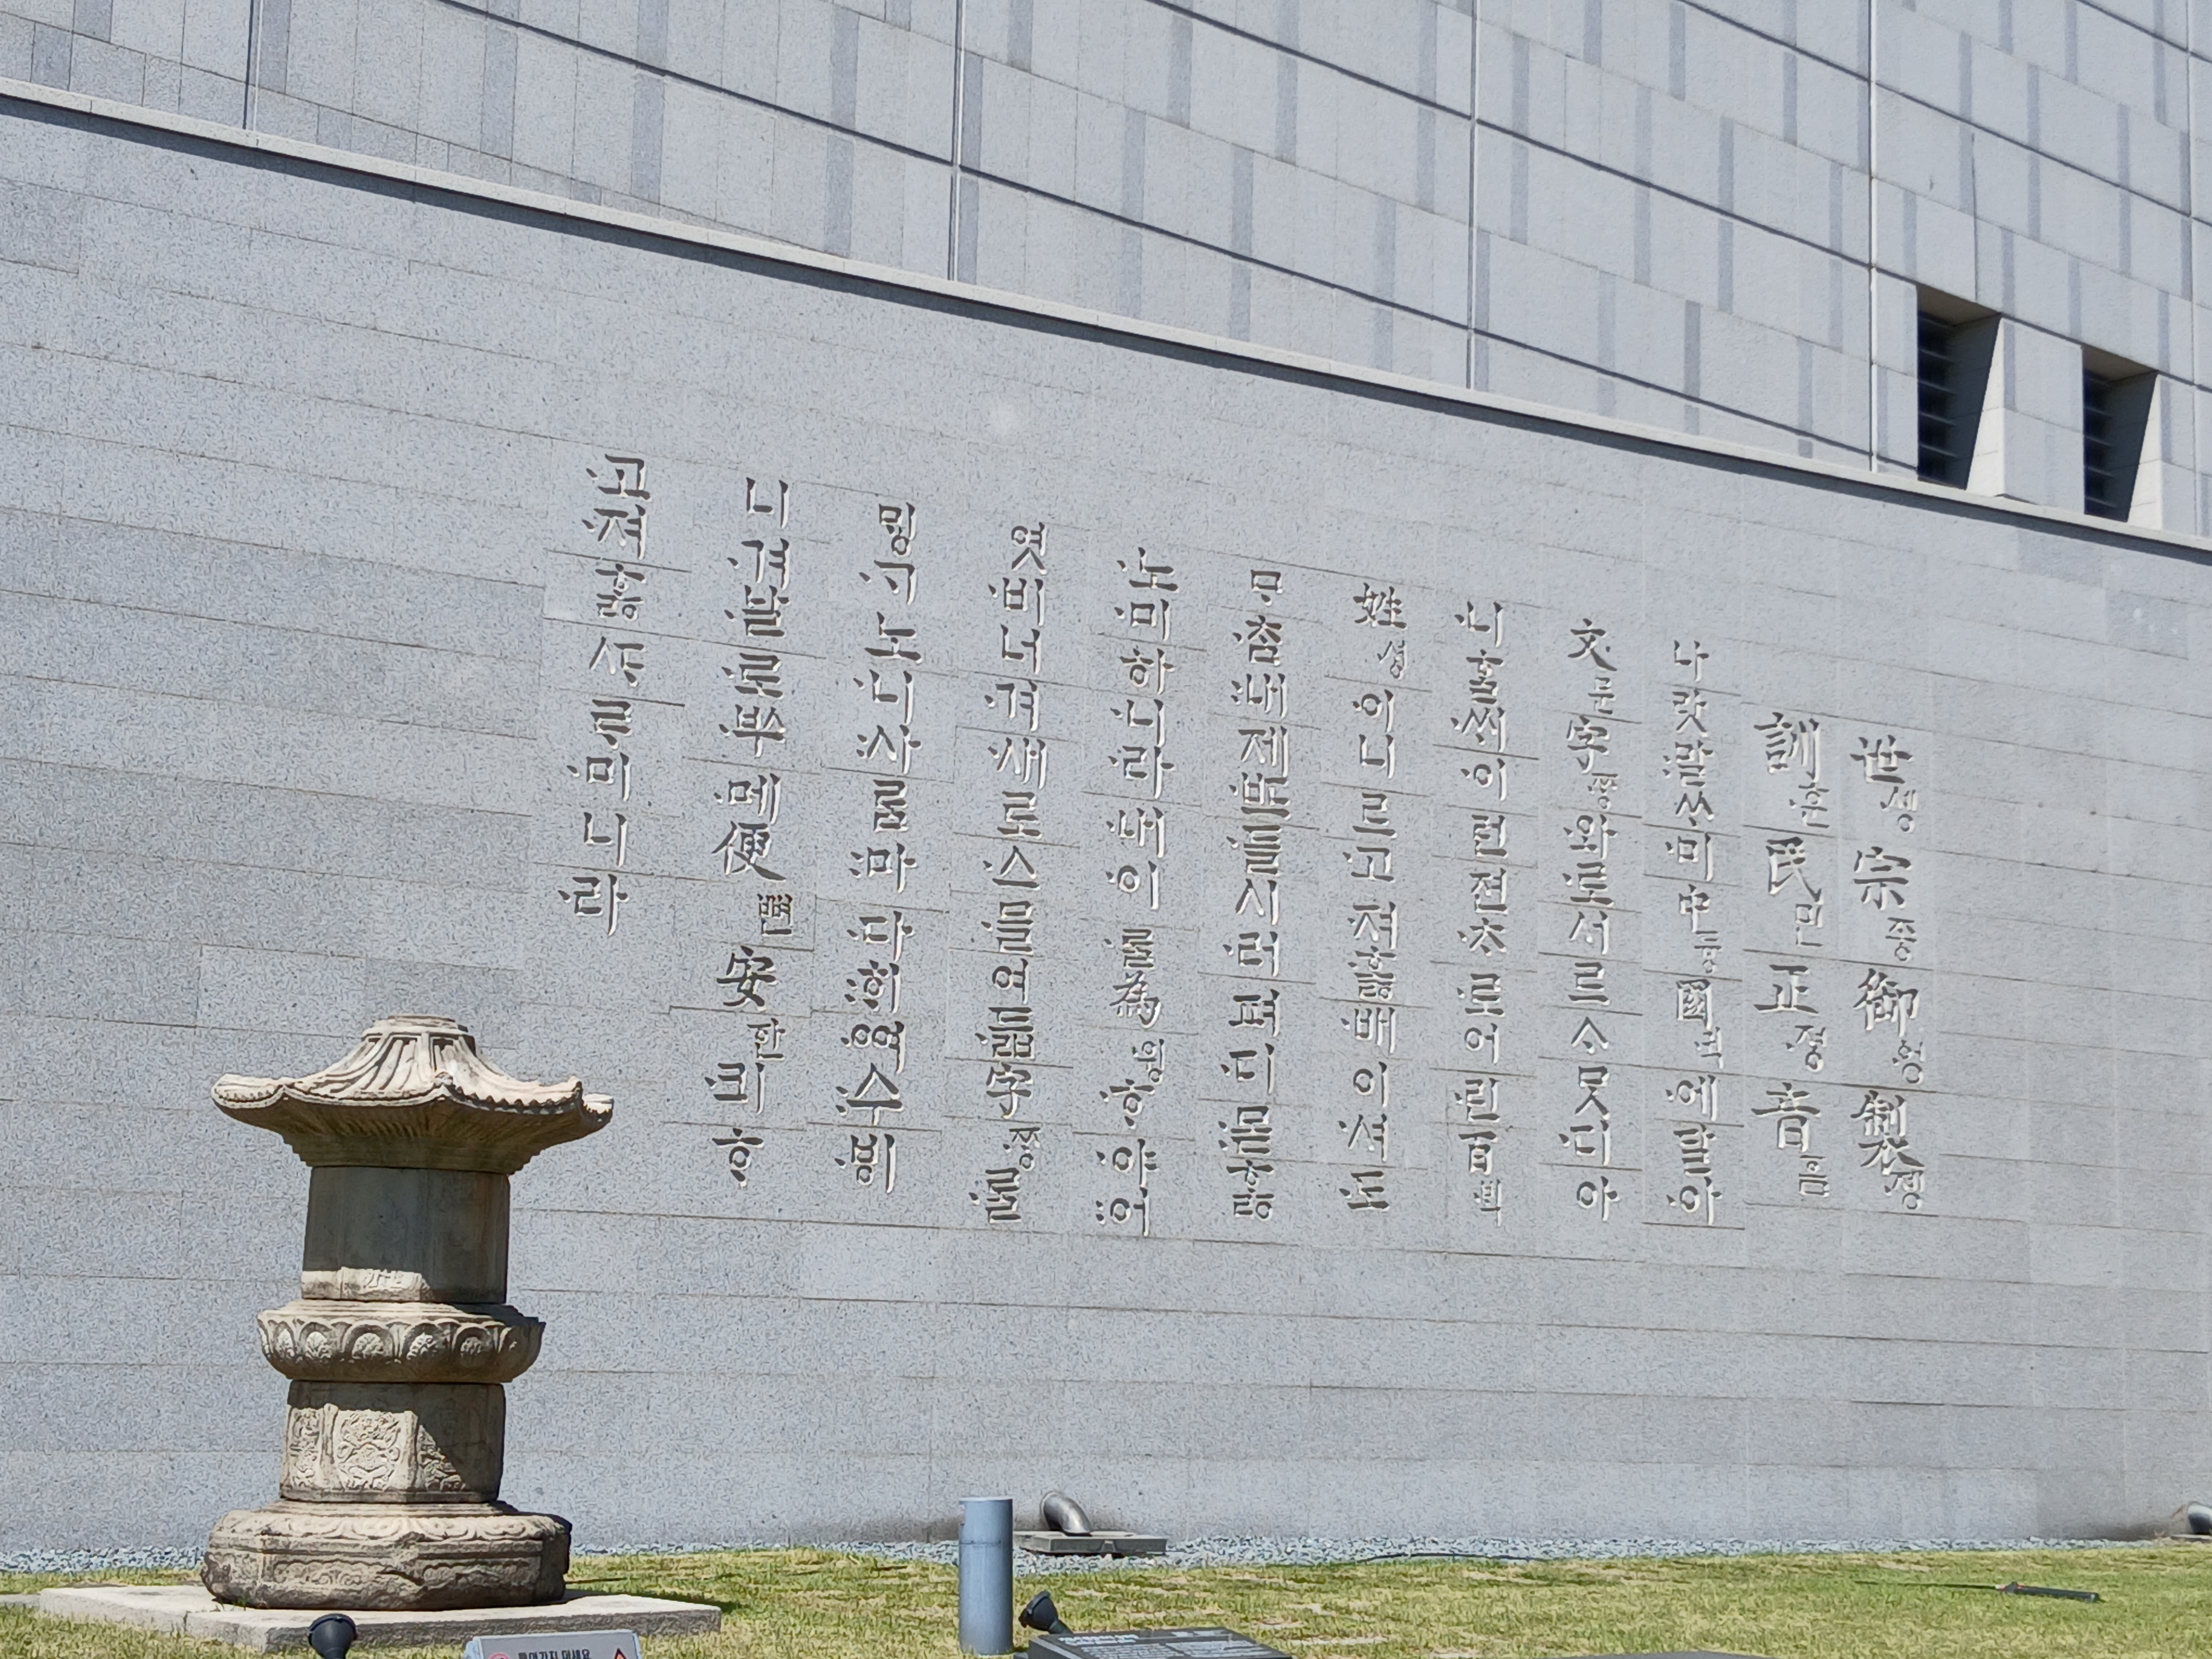 世솅宗조ᇰ御ᅌᅥᆼ製졩
訓훈民민正져ᇰ音ᅙᅳᆷ
나랏말ᄊᆞ미中듀ᇰ國귁에달아
文문字ᄍᆞᆼ와로서르ᄉᆞᄆᆞᆺ디아
니ᄒᆞᆯᄊᆡ이런젼ᄎᆞ로어린百ᄇᆡᆨ
姓셔ᇰ이니르고져호ᇙ배이셔도
ᄆᆞᄎᆞᆷ내제ᄠᅳ들시러펴디몯ᄒᆞᇙ
노미하니라내이ᄅᆞᆯ為윙ᄒᆞ야어
엿비너겨새로스믈여듧字ᄍᆞᆼᄅᆞᆯ
ᄆᆡᇰᄀᆞ노니사ᄅᆞᆷ마다ᄒᆡᅇᅧ수ᄫᅵ
니겨날로ᄡᅮ메便뼌安ᅙᅡᆫ킈ᄒᆞ
고져ᄒᆞᇙᄯᆞᄅᆞ미니라
들어가지 마세요